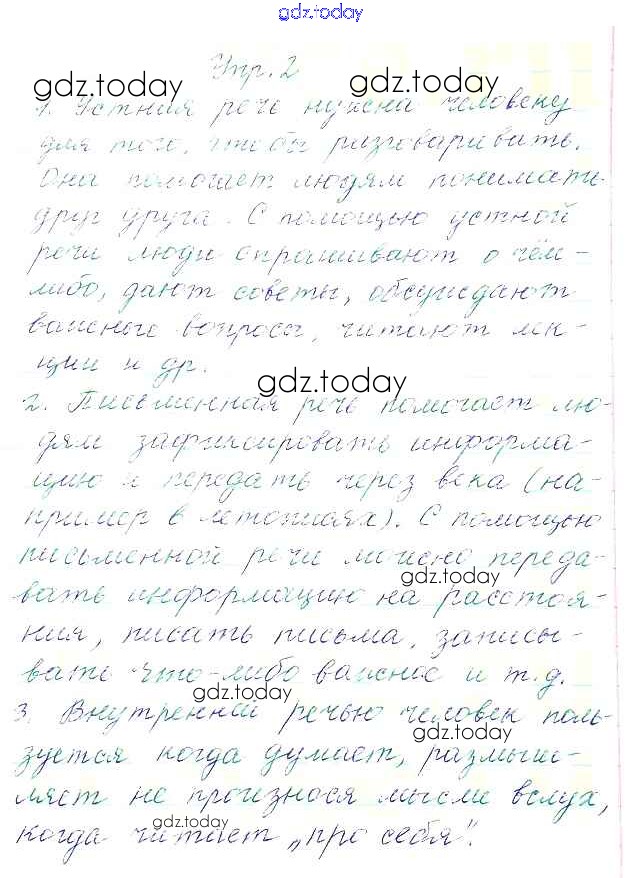 gdz.today
Упр. 2
gdz.today
gdz.today
1. Устная речь нужна человеку
для того, чтобы разговаривать.
Она помогает людям понимать
друг друга. С помощью устной
речи люди спрашивают о чём-
либо, дают советы, обсуждают
важные вопросы, читают лек-
ции и др.
gdz.today
2. Письменная речь помогает лю-
дям зафиксировать информа-
цию и передать через века (на-
пример в летописях). С помощью
письменной речи можно переда-
gdz.today
вать информацию на расстоя-
ния, писать письма, записы-
вать что-либо важное и т.д.
gdz.today
3. Внутренней речью человек поль-
gdz.today
зуется когда думает, размыш-
ляет не произнося мысли вслух,
gdz.today
когда читает „про себя".